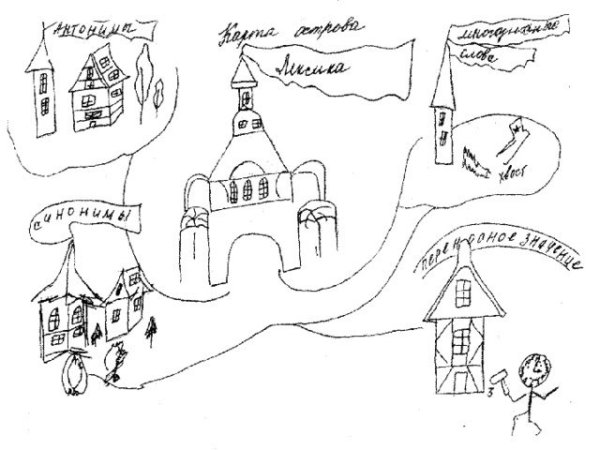 Карта острова
Лексика
Антонимы
многозначные
слова
хвост
синонимы
переносное значение
З